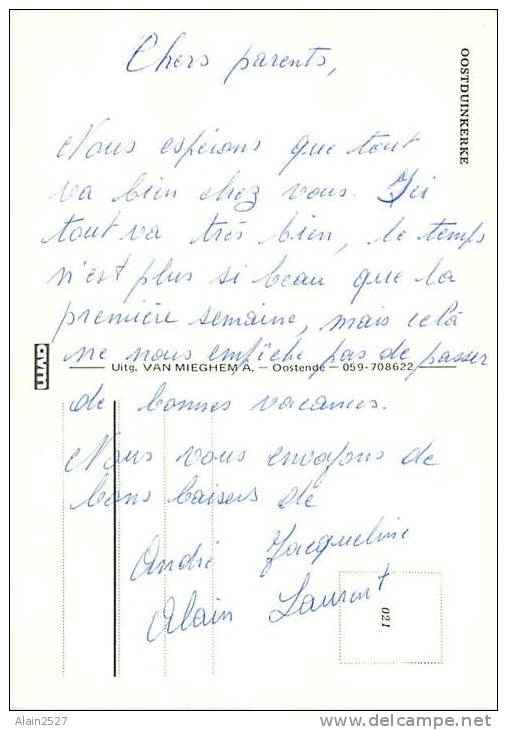 Chers parents,
OOSTDUINKERKE
Nous espérons que tout
va bien chez vous. Ici
tout va très bien, le temps
n'est plus si beau que la
première semaine, mais celà
ne nous empêche pas de passer
avm
Uitg. VAN MIEGHEM A. — Oostende — 059-708622
de bonnes vacances.
Nous vous envoyons de
bons baisers de
André Jacqueline
Alain Laurent
021
Alain2527
delcampe.net